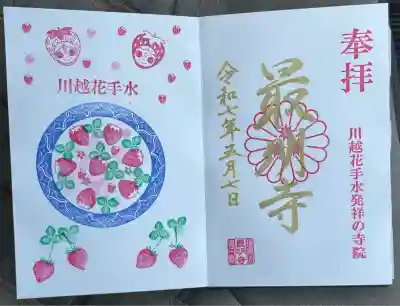 奉拝
川越花手水発祥の寺院
最明寺
令和七年五月七日
川越花手水